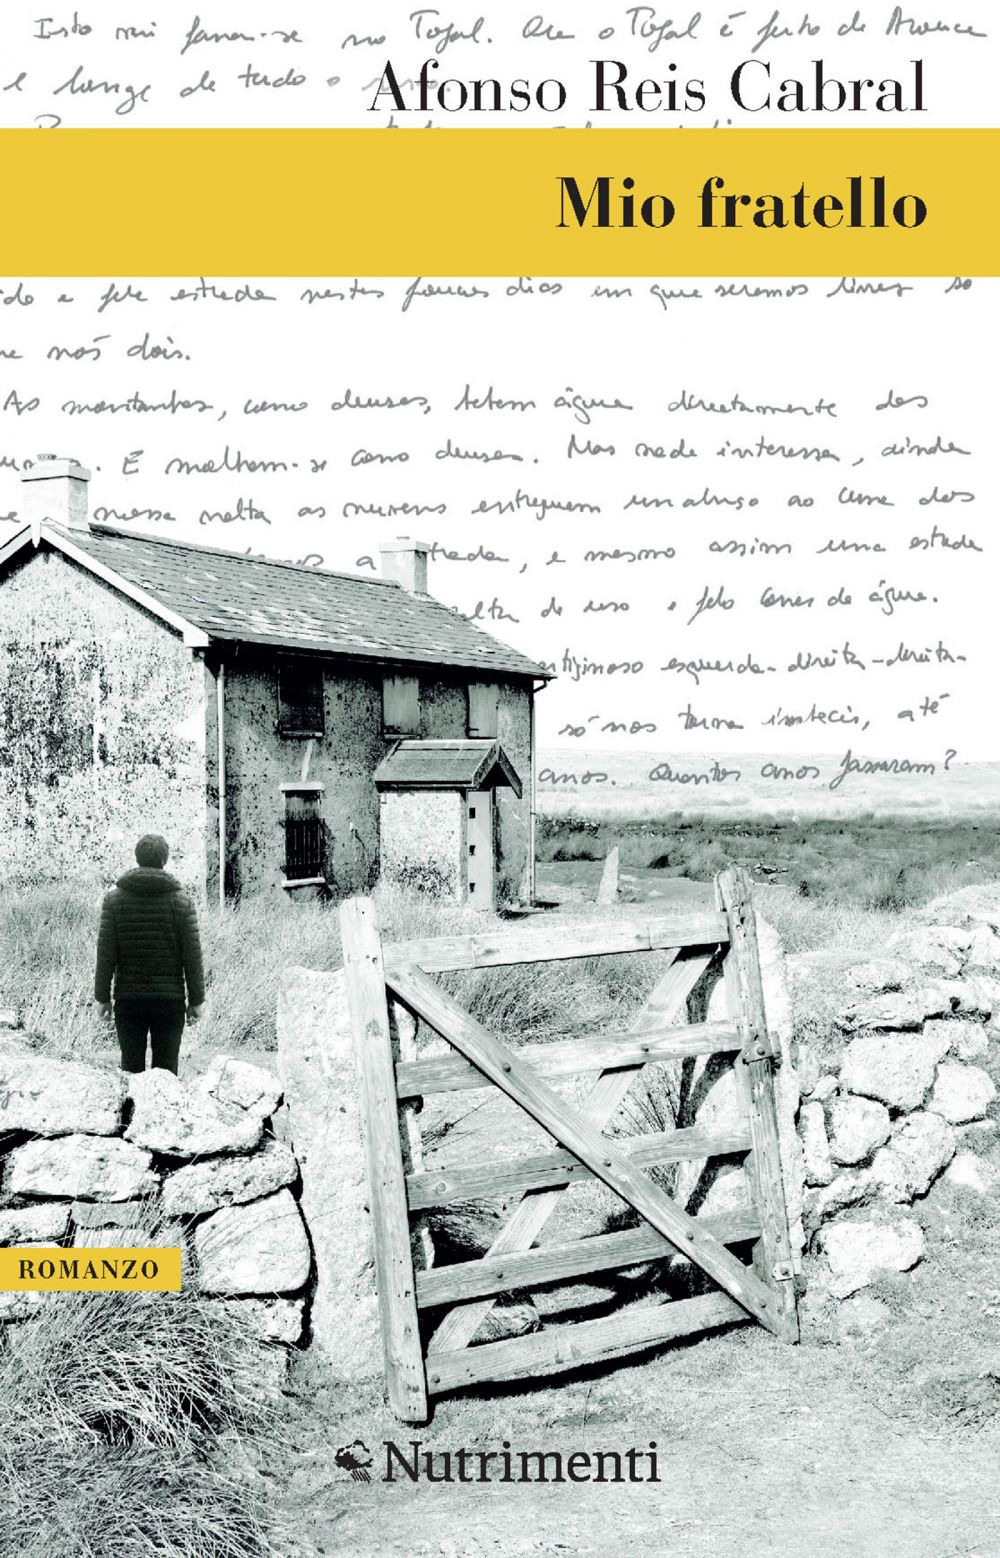 Isto vai passar-se no Tojal. Ora o Tojal é perto de Arouca
e longe de tudo o
Afonso Reis Cabral
Mio fratello
e pela estrada nestes poucos dias em que seremos livres só
nós dois.
As montanhas, como deuses, bebem água directamente das
. E molham-se como deuses. Mas nada interessa, ainda
nessa volta as nuvens entreguem um abraço ao cume dos
a trada, e mesmo assim uma estrada
de uso e pelo correr da água.
tiginoso esquerda-direita-direita-
só nos torna imbecis, até
anos. Quantos anos passaram?
ROMANZO
Nutrimenti